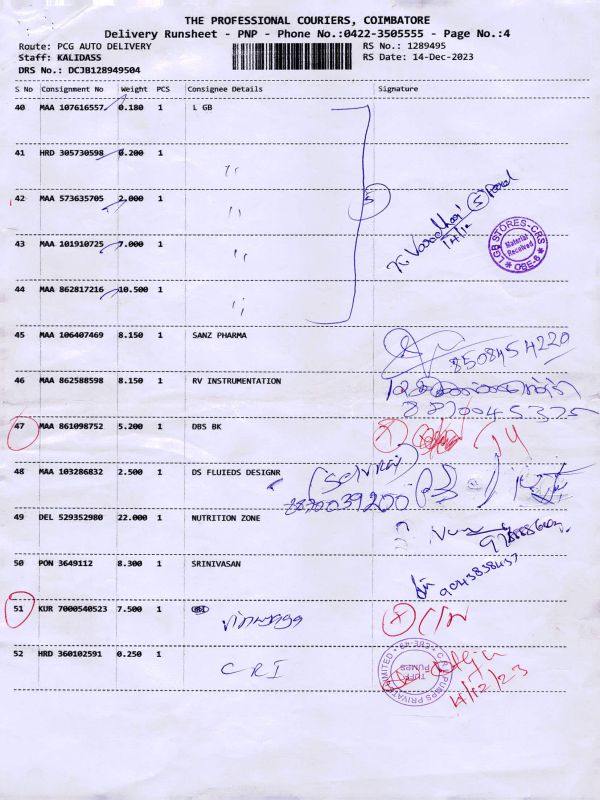 THE PROFESSIONAL COURIERS, COIMBATORE
Delivery Runsheet - PNP - Phone No.:0422-3505555 - Page No.:4
Route: PCG AUTO DELIVERY RS No.: 1289495
Staff: KALIDASS RS Date: 14-Dec-2023
DRS No.: DCJB128949504
S No Consignment No Weight PCS Consignee Details Signature
40 MAA 107616557 0.180 1 L GB
41 HRD 305730598 0.200 1 ''
42 MAA 573635705 2.000 1 ''
5
43 MAA 101910725 7.000 1 ''
14/12
LGB STORES-CRS
Material Received
OBE-6
44 MAA 862817216 10.500 1 ''
45 MAA 106407469 8.150 1 SANZ PHARMA
8508454220
46 MAA 862588598 8.150 1 RV INSTRUMENTATION
47 MAA 861098752 5.200 1 DBS BK
48 MAA 103286832 2.500 1 DS FLUIEDS DESIGNR
(Selvraj)
8870039200
49 DEL 529352980 22.000 1 NUTRITION ZONE
50 PON 3649112 8.300 1 SRINIVASAN
9043838437
51 KUR 7000540523 7.500 1
52 HRD 360102591 0.250 1 CRI
C.R.I PUMPS PRIVATE LIMITED
PUMPS
14/12/23